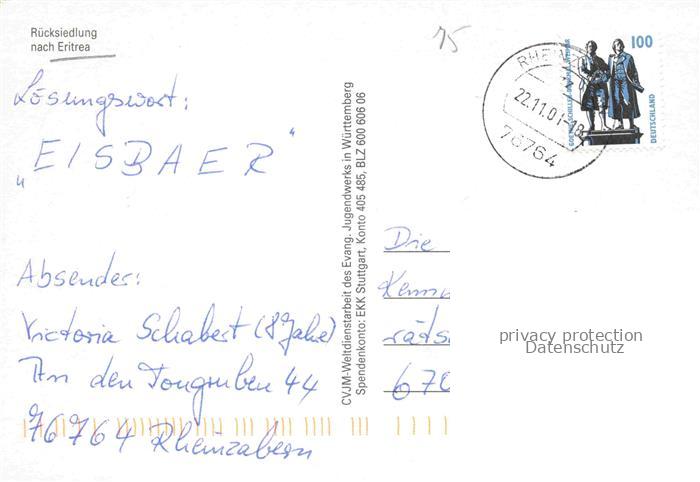 Rücksiedlung
nach Eritrea
15
Lösungswort:
„EISBAER"
Absender:
Victoria Schabert (8 Jahre)
An den Tongruben 44
76764 Rheinzabern
CVJM-Weltdienstarbeit des Evang. Jugendwerks in Württemberg
Spendenkonto: EKK Stuttgart, Konto 405 485, BLZ 600 606 06
RHEINZ
22.11.01-18
76764
100
DEUTSCHLAND
Die
Kenn
räts
670
privacy protection
Datenschutz